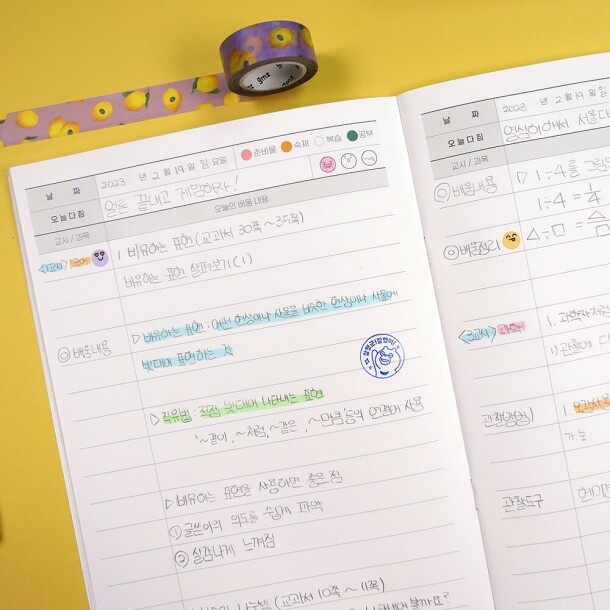 gms
날 짜 2023 년 2 월 19 일 일 요일
준비물 숙제 복습 공부
오늘 다짐 얼른 끝내고 게임하자!
교시 / 과목 오늘의 배움 내용
<1교시> 국어
1. 비유하는 표현 (교과서 30쪽 ~ 35쪽)
비유하는 표현 살펴보기 (1)
◎ 배움내용
▷ 비유하는 표현 : 어떤 현상이나 사물을 비슷한 현상이나 사물에
빗대어 표현하는 것
참 잘했어요!
▷ 직유법 : 직접 빗대어 나타내는 표현
'~같이, ~처럼, ~같은, ~인듯' 등의 연결어 사용
▷ 비유하는 표현을 사용하면 좋은 점
① 글쓴이의 의도를 쉽게 파악
② 실감나게 느껴짐
(교과서 10쪽 ~ 11쪽)
날 짜 2023 년 2 월 19 일 일
오늘 다짐 열심히해서 서울대
교시 / 과목
◎ 배움내용 ▷ 1÷4를 그림
1÷4 = 1/4
◎ 배움정리 △÷□ = △/□
<3교시> 과학
1. 과학자처럼
1) 관찰에 대
관찰방법) 1. 오감사용
관찰도구 현미경